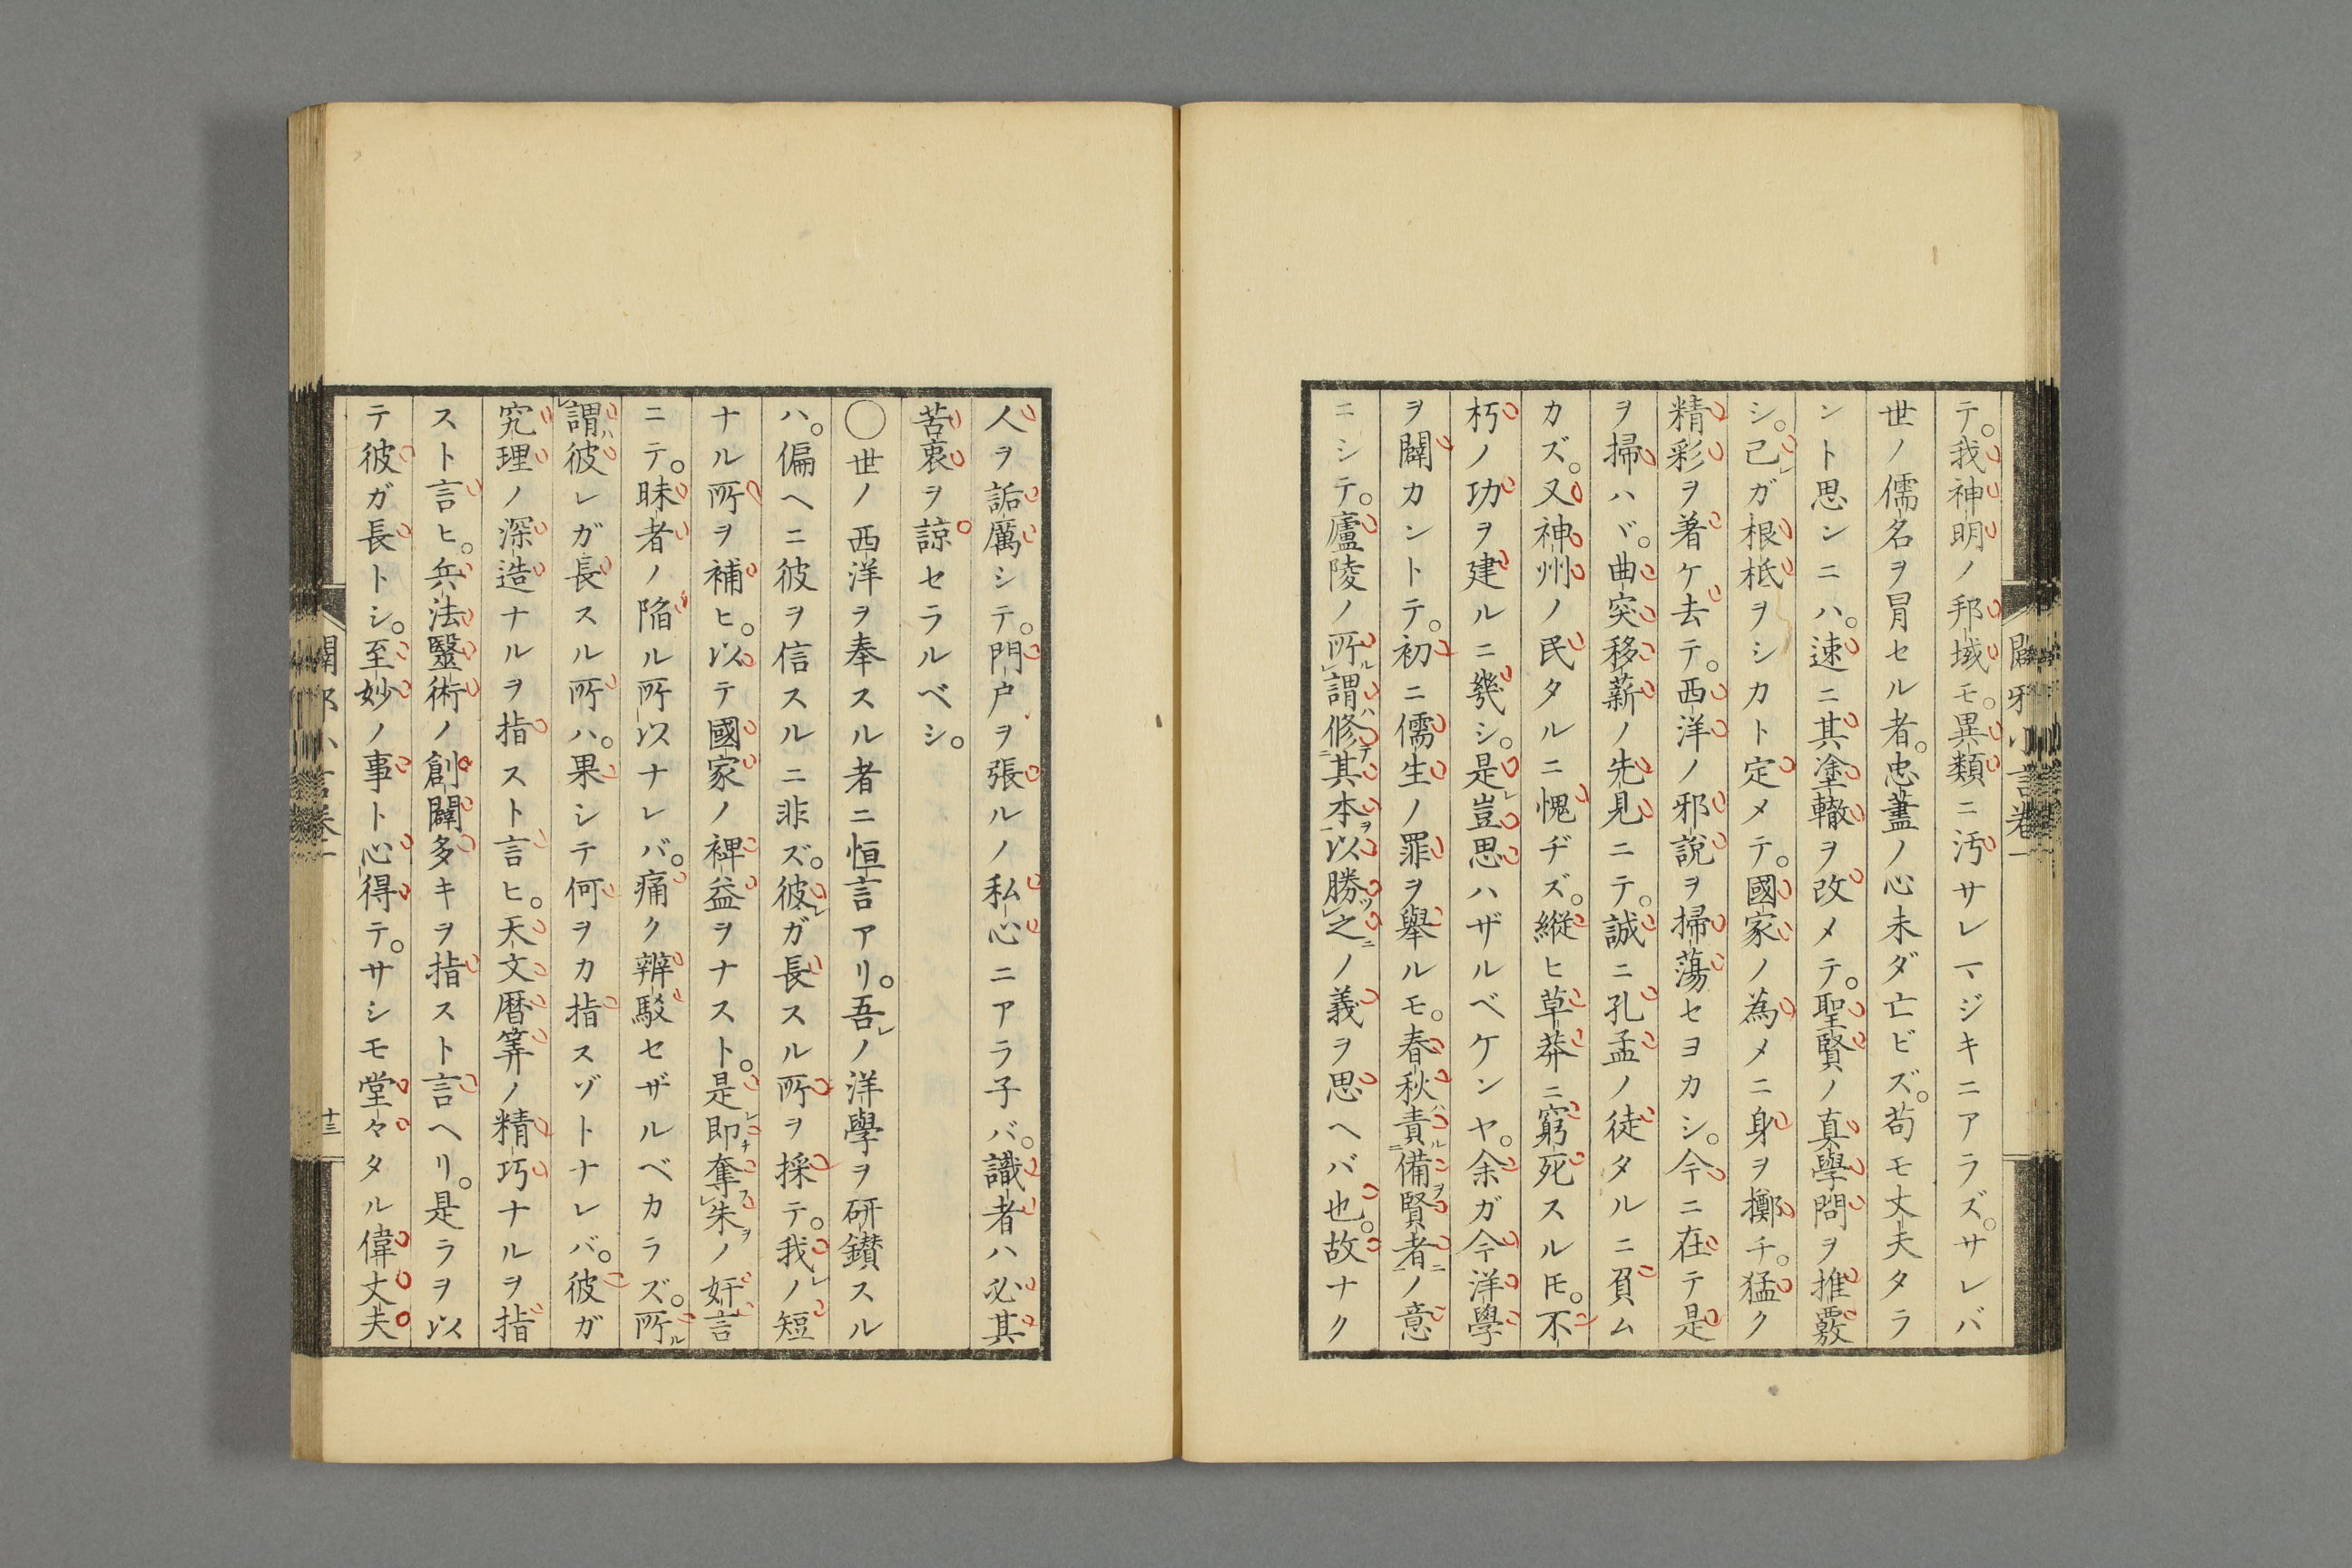 テ。我神明ノ邦域モ。異類ニ汚サレマジキニアラズ。サレバ
世ノ儒名ヲ冒セル者。忠藎ノ心未ダ亡ビズ。苟モ丈夫タラ
ント思ンニハ。速ニ其塗轍ヲ改メテ。聖賢ノ真學問ヲ推覈
シ。己レガ根柢ヲシカト定メテ。國家ノ為メニ身ヲ擲チ。猛ク
精彩ヲ著ケ去テ。西洋ノ邪説ヲ掃蕩セヨカシ。今ニ在テ是
ヲ掃ハヾ。曲突移薪ノ先見ニテ。誠ニ孔孟ノ徒タルニ負ム
カズ。又神州ノ民タルニ愧ヂズ。縦ヒ草莽ニ窮死スルモ。不
朽ノ功ヲ建ルニ幾シ。是レ豈思ハザルベケンヤ。余ガ今洋學
ヲ闢カントテ。初ニ儒生ノ罪ヲ擧ルモ。春秋ハ責ルニ備ヲ賢者ニノ意
ニシテ。廬陵ノ所ル謂ハ修テ其本ヲ以勝ツ之ニノ義ヲ思ヘバ也。故ナク
人ヲ詬厲シテ。門戸ヲ張ルノ私心ニアラ子バ。識者ハ必其
苦衷ヲ諒セラルベシ。
〇世ノ西洋ヲ奉スル者ニ恒言アリ。吾レノ洋學ヲ研鑚スル
ハ。偏ヘニ彼ヲ信スルニ非ズ。彼レガ長スル所ヲ採テ。我レノ短
ナル所ヲ補ヒ。以テ國家ノ裨益ヲナスト。是レ即チ奪フ朱ヲノ奸言
ニテ。昧者ノ陥ル所以ナレバ。痛ク辨駁セザルベカラズ。所ル
謂ハ彼レガ長スル所ハ。果シテ何ヲカ指スゾトナレバ。彼ガ
究理ノ深造ナルヲ指スト言ヒ。天文暦筭ノ精巧ナルヲ指
スト言ヒ。兵法毉術ノ創闢多キヲ指スト言ヘリ。是ラヲ以
テ彼ガ長トシ。至妙ノ事ト心得テ。サシモ堂々タル偉丈夫
闢邪小言巻一
十三